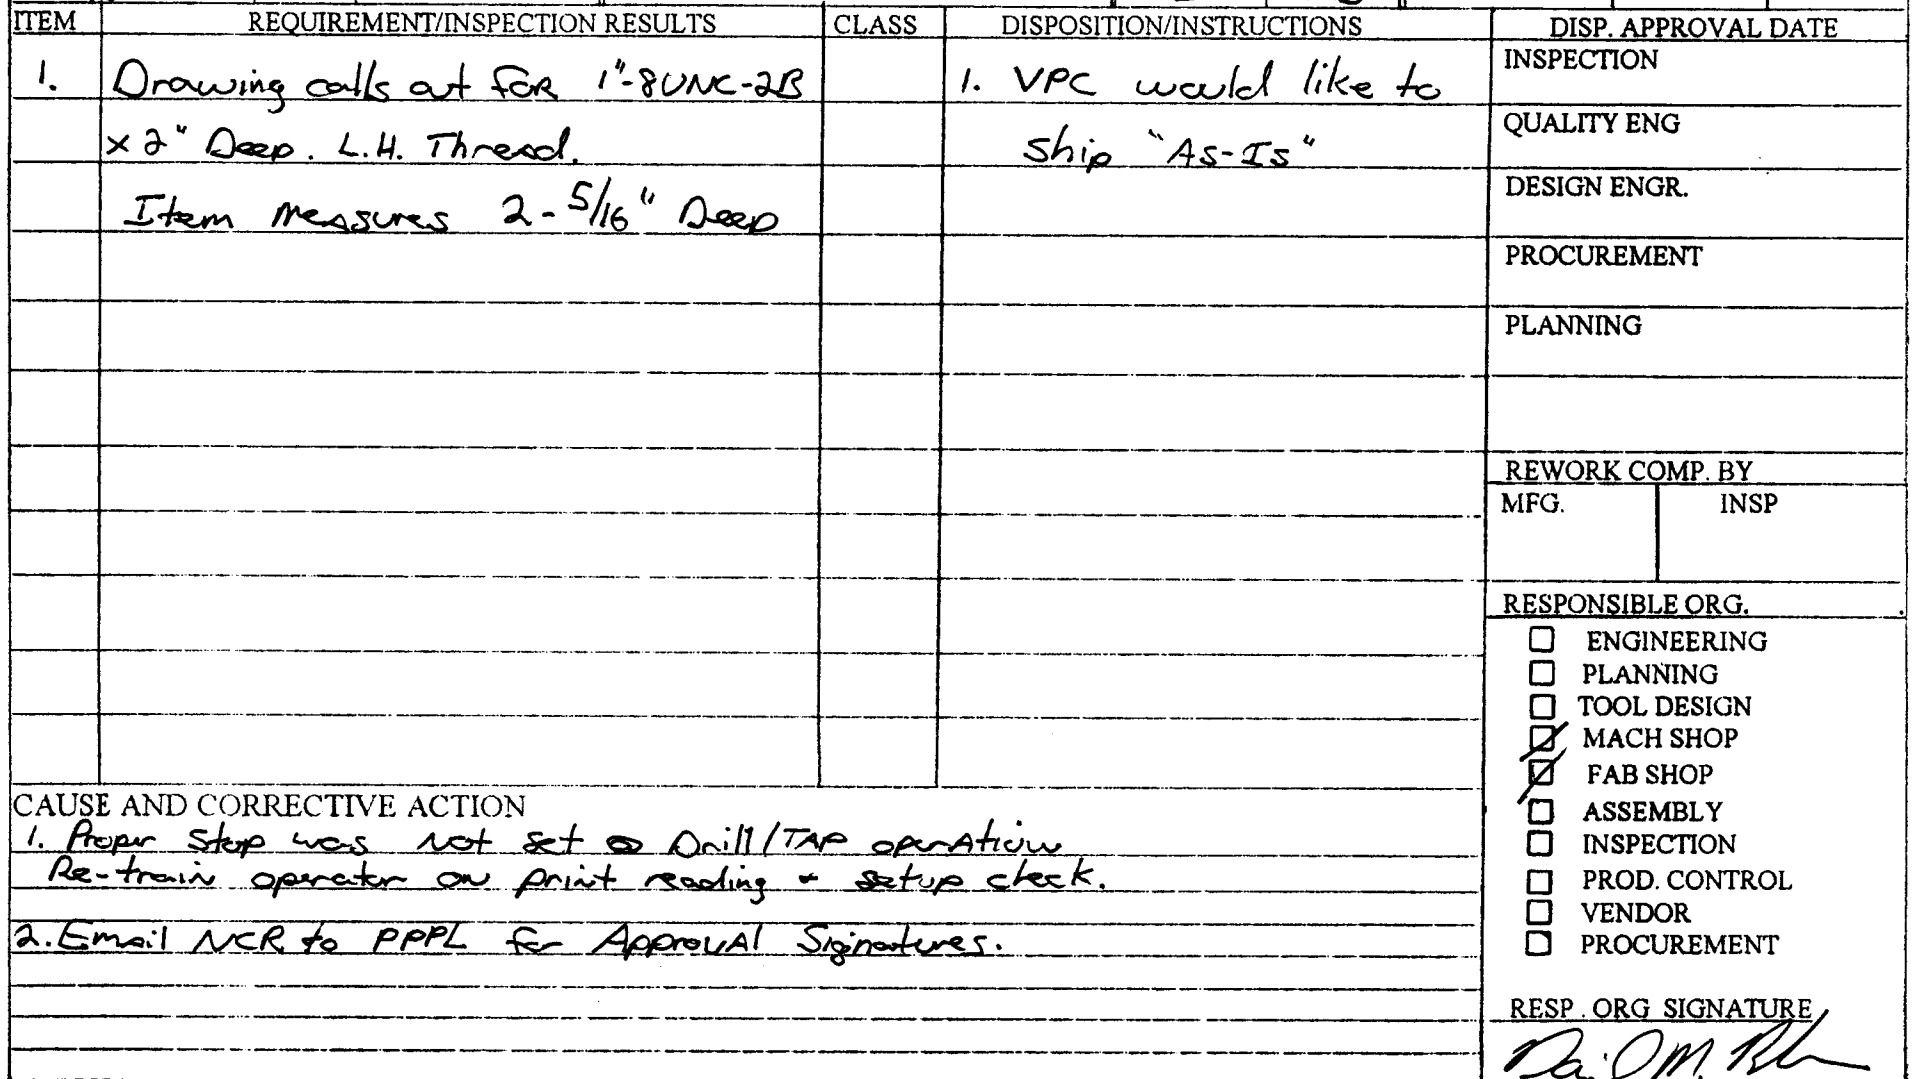 ITEM REQUIREMENT/INSPECTION RESULTS CLASS DISPOSITION/INSTRUCTIONS DISP. APPROVAL DATE
1. Drawing calls out for 1"-8UNC-2B
x 2" Deep. L.H. Thread.
Item measures 2-5/16" Deep
1. VPC would like to
Ship "As-Is"
INSPECTION
QUALITY ENG
DESIGN ENGR.
PROCUREMENT
PLANNING
REWORK COMP. BY
MFG. INSP
RESPONSIBLE ORG.
ENGINEERING
PLANNING
TOOL DESIGN
MACH SHOP
FAB SHOP
ASSEMBLY
INSPECTION
PROD. CONTROL
VENDOR
PROCUREMENT
RESP. ORG SIGNATURE
CAUSE AND CORRECTIVE ACTION
1. Proper Stop was not set Drill/TAP operation
Re-train operator on print reading + setup check.
2. Email NCR to PPPL for Approval Signatures.